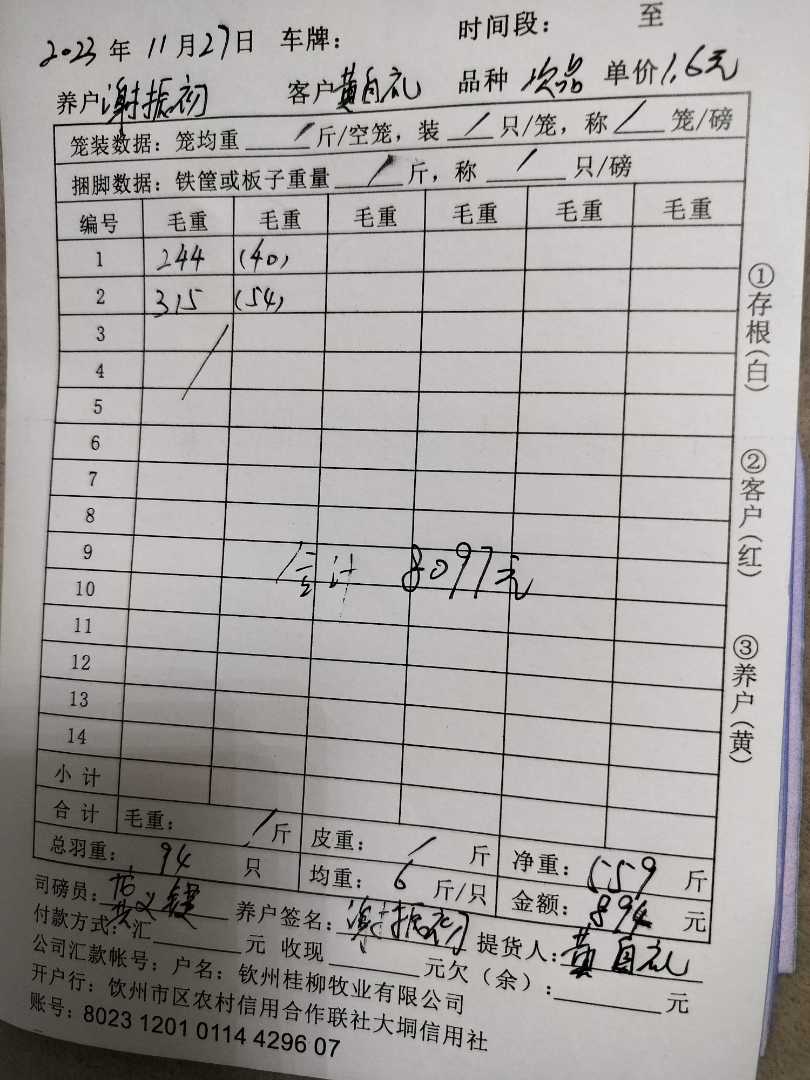 2023 年 11 月 27 日 车牌： 时间段： 至
养户 谢振初 客户 黄自礼 品种 次品 单价 1.6元
笼装数据：笼均重 / 斤/空笼，装 / 只/笼，称 / 笼/磅
捆脚数据：铁筐或板子重量 / 斤，称 / 只/磅
编号 毛重 毛重 毛重 毛重 毛重 毛重
1 244 (40)
2 315 (54)
3 /
4
5
6
7
8
9
合计 8097元
10
11
12
13
14
小计
合计 毛重： / 斤 皮重： / 斤 净重：559 斤
总羽重： 94 只 均重： 6 斤/只 金额：894 元
司磅员： 养户签名：谢振初 提货人：黄自礼
付款方式：汇 元 收现 元欠（余）： 元
公司汇款帐号：户名：钦州桂柳牧业有限公司
开户行：钦州市区农村信用合作联社大垌信用社
账号：8023 1201 0114 4296 07
①存根（白）
②客户（红）
③养户（黄）